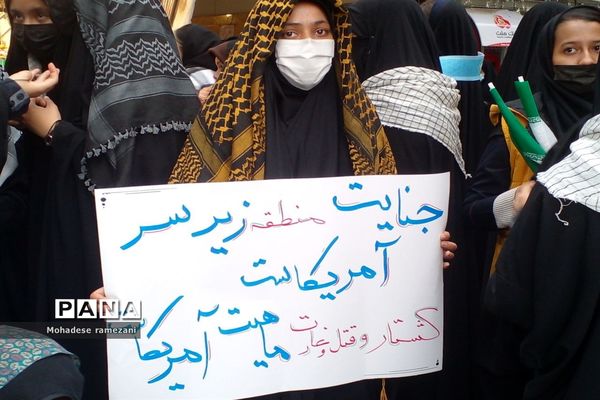 جنایت منطقه زیر سر
آمریکاست
کشتار و قتل و غارت ماهیت آمریکا
PANA
Mohadese ramezani